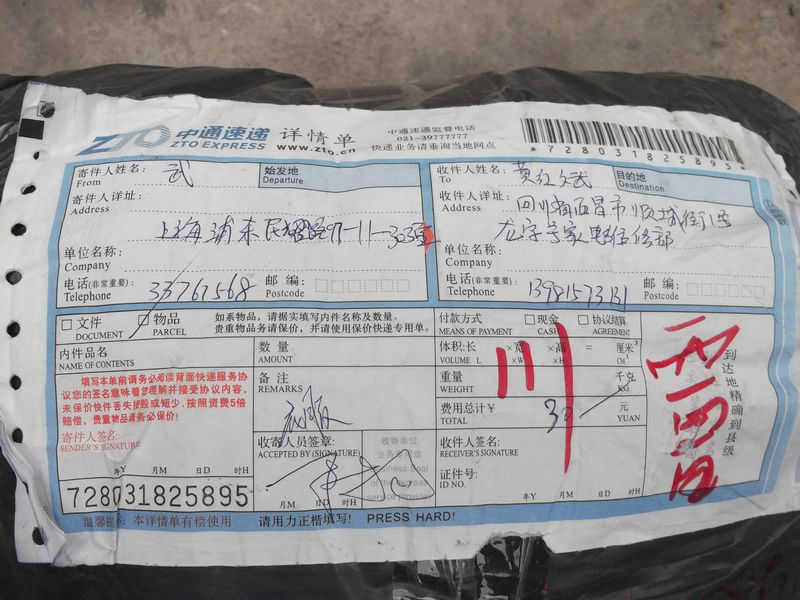 ZTO 中通速递 详情单
ZTO EXPRESS www.zto.cn
中通速递监督电话
021-39777777
快递业务请垂询当地网点
*728031825895*
寄件人姓名: 武
From
始发地
Departure
寄件人详址:
Address
上海浦东
单位名称:
Company
电话(非常重要) 33767568
Telephone
邮编:
Postcode
收件人姓名:
To
黄红武
目的地
Destination
收件人详址:
Address
四川省西昌市顺城街
龙宇家电维修部
单位名称:
Company
电话(非常重要)
Telephone
邮编:
Postcode
文件
DOCUMENT
物品
PARCEL
如系物品,请据实填写内件名称及数量。
贵重物品请保价,并请使用保价快递专用单。
付款方式
MEANS OF PAYMENT
现金
CASH
协议结算
AGREEMENT
内件品名
NAME OF CONTENTS
数量
AMOUNT
体积:长 ×宽 ×高 = 厘米³
VOLUME L ×W ×H Cm³
填写本单前请务必阅读背面快递服务协
议!您的签名意味着您理解并接受协议内容。
未保价快件丢失损毁或短少,按照资费5倍
赔偿,贵重物品请务必保价!
备注
REMARKS
衣服
重量 千克
WEIGHT KG
费用总计¥ 30 元
TOTAL YUAN
寄件人签名:
SENDER'S SIGNATURE
年Y 月M 日D 时H
收寄人员签章:
ACCEPTED BY (SIGNATURE)
年Y 月M 日D 时H
收件人签名:
RECEIVER'S SIGNATURE
证件号:
ID NO.
年Y 月M 日D 时H
川
西昌
到达地精确到县级
728031825895
温馨提示:本详情单有偿使用 请用力正楷填写! PRESS HARD!